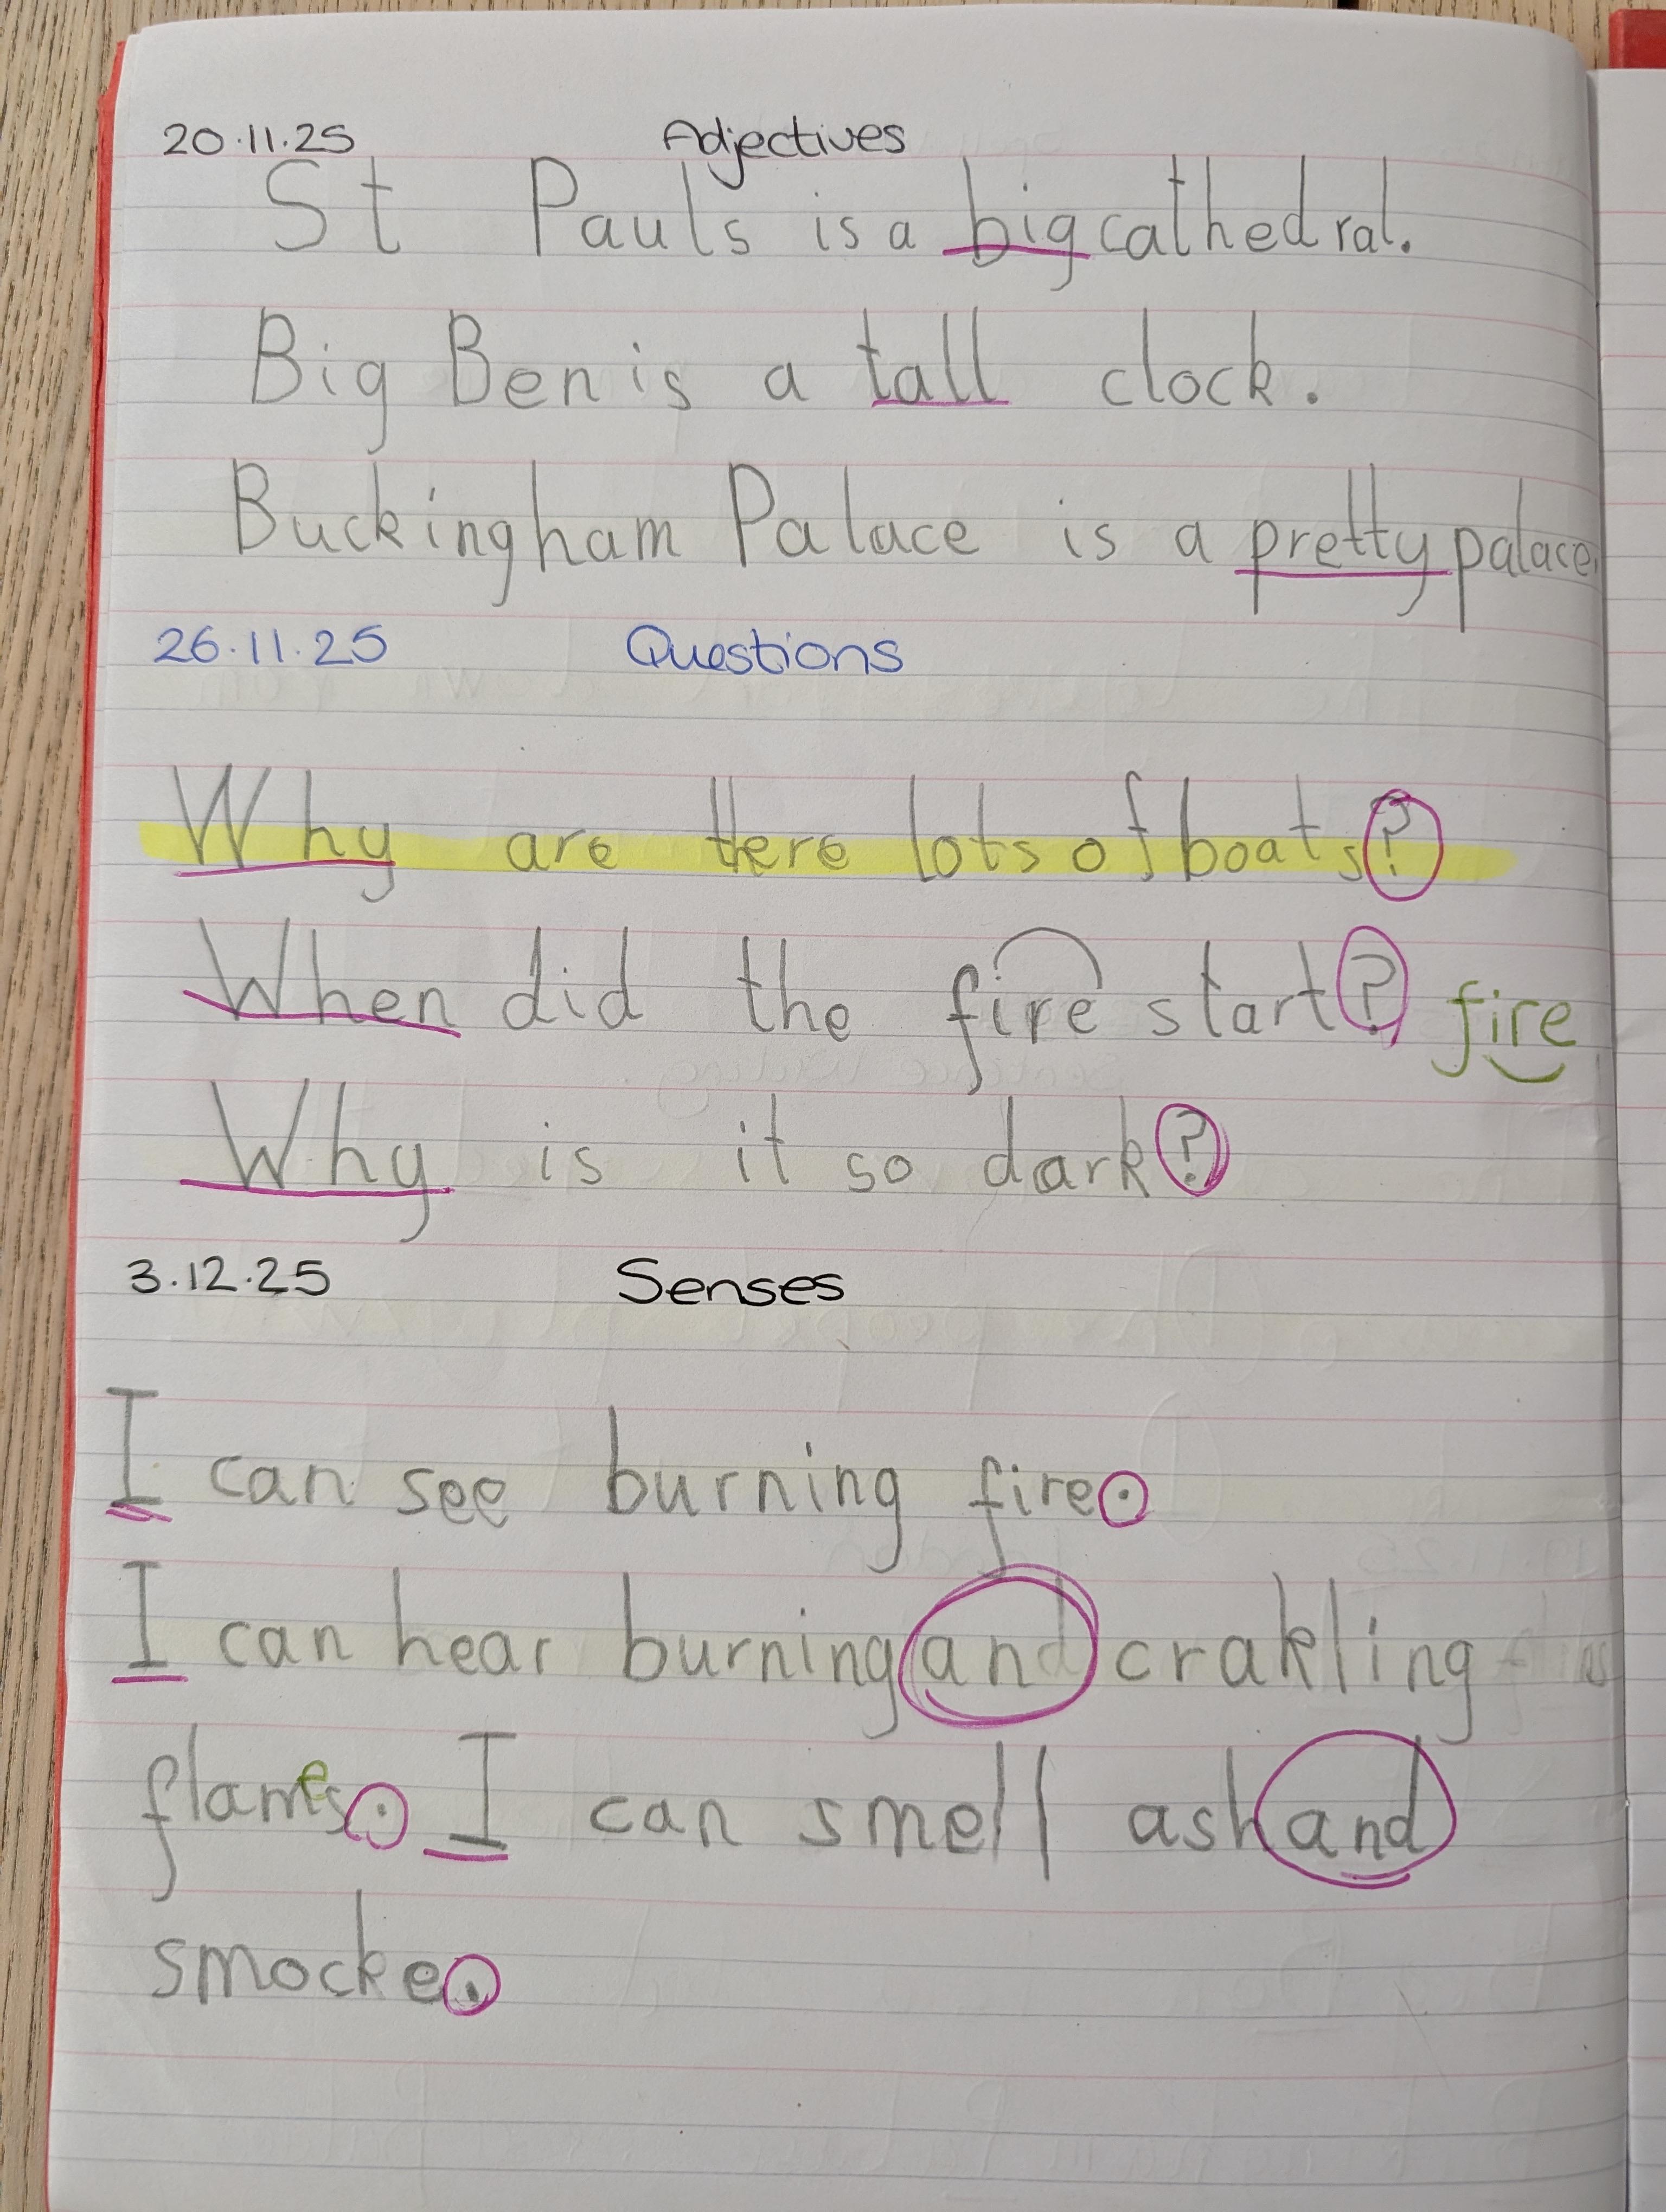 20.11.25 Adjectives
St Pauls is a big cathedral.
Big Ben is a tall clock.
Buckingham Palace is a pretty palace.
26.11.25 Questions
Why are there lots of boats?
When did the fire start? fire
Why is it so dark?
3.12.25 Senses
I can see burning fire.
I can hear burning and crakling
flames. I can smell ash and
smocke.